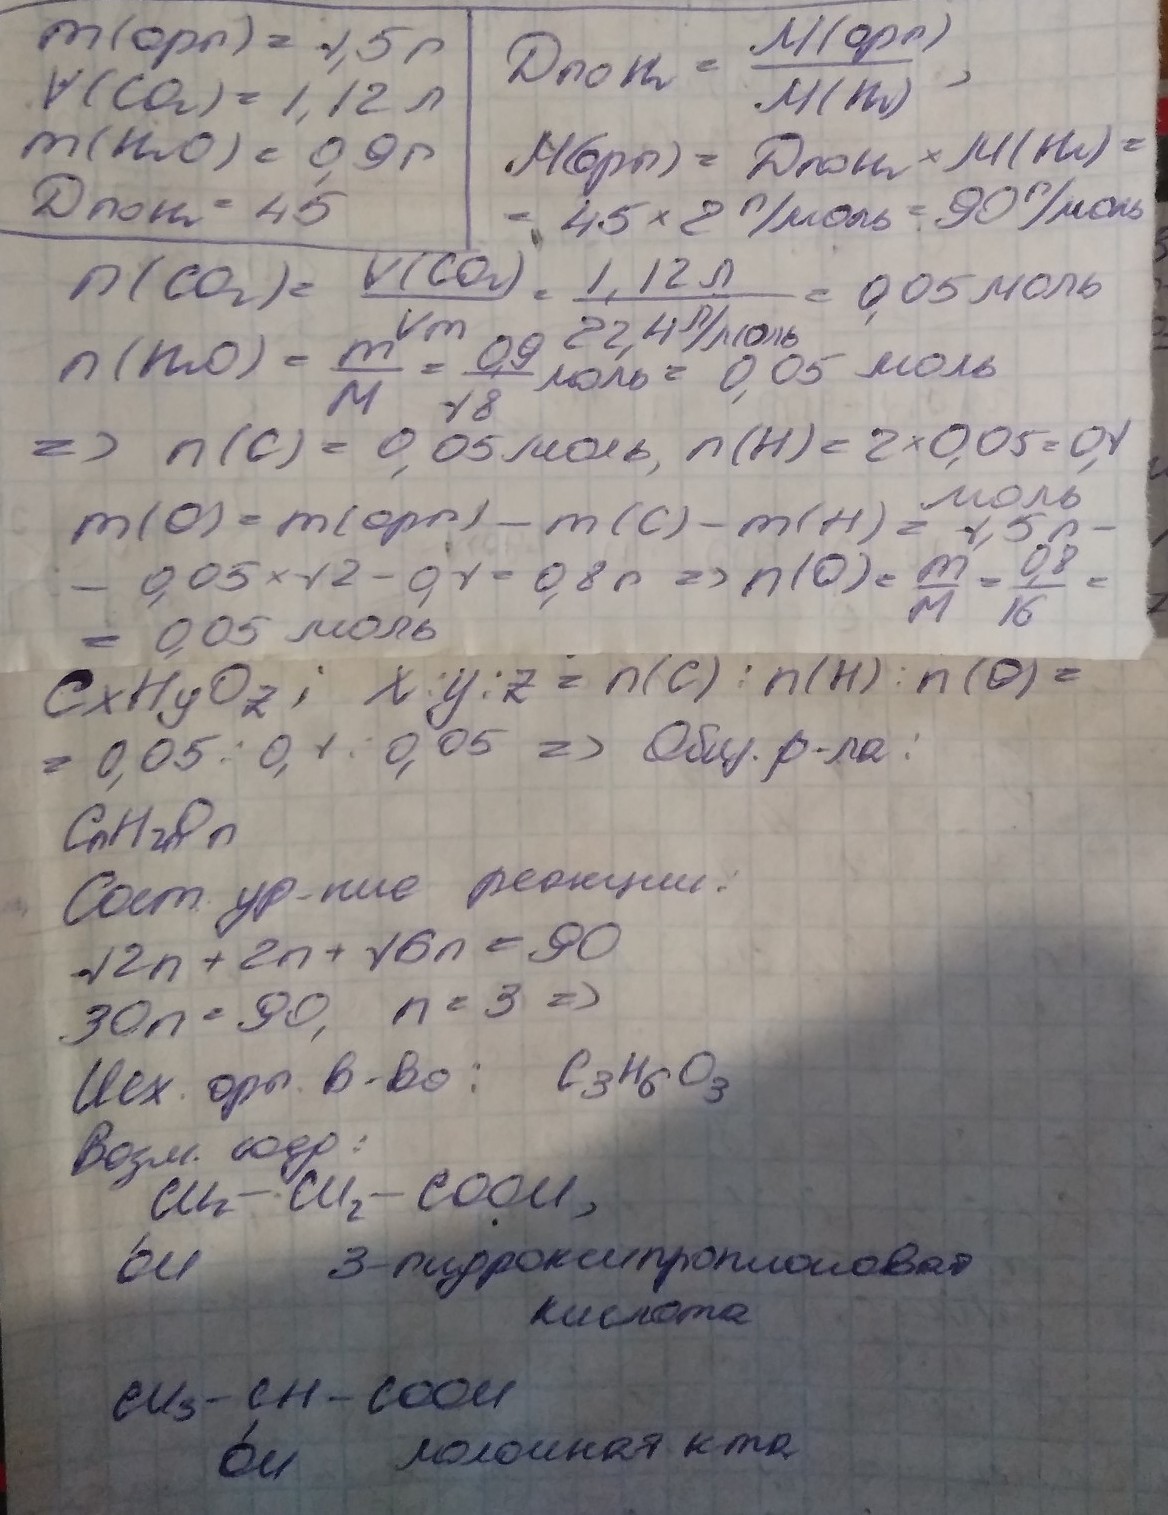 m(орг) = 1,5 г
V(CO₂) = 1,12 л
m(H₂O) = 0,9 г
D по H₂ = 45
D по H₂ = M(орг) / M(H₂) ,
M(орг) = D по H₂ × M(H₂) =
= 45 × 2 г/моль = 90 г/моль
n(CO₂) = V(CO₂) / Vm = 1,12 л / 22,4 л/моль = 0,05 моль
n(H₂O) = m / M = 0,9 / 18 моль = 0,05 моль
=> n(C) = 0,05 моль, n(H) = 2×0,05 = 0,1
моль
m(O) = m(орг) – m(C) – m(H) = 1,5 г –
– 0,05 × 12 – 0,1 = 0,8 г => n(O) = m / M = 0,8 / 16 =
= 0,05 моль
CxHyOz ; x : y : z = n(C) : n(H) : n(O) =
= 0,05 : 0,1 : 0,05 => Общ. ф-ла :
CnH2nOn
Сост. ур-ние реакции :
12n + 2n + 16n = 90
30n = 90, n = 3 =>
Исх. орг. в-во : C₃H₆O₃
Возм. :
CH₂ – CH₂ – COOH,
OH 3-гидроксипропионовая
кислота
CH₃ – CH – COOH
OH молочная к-та